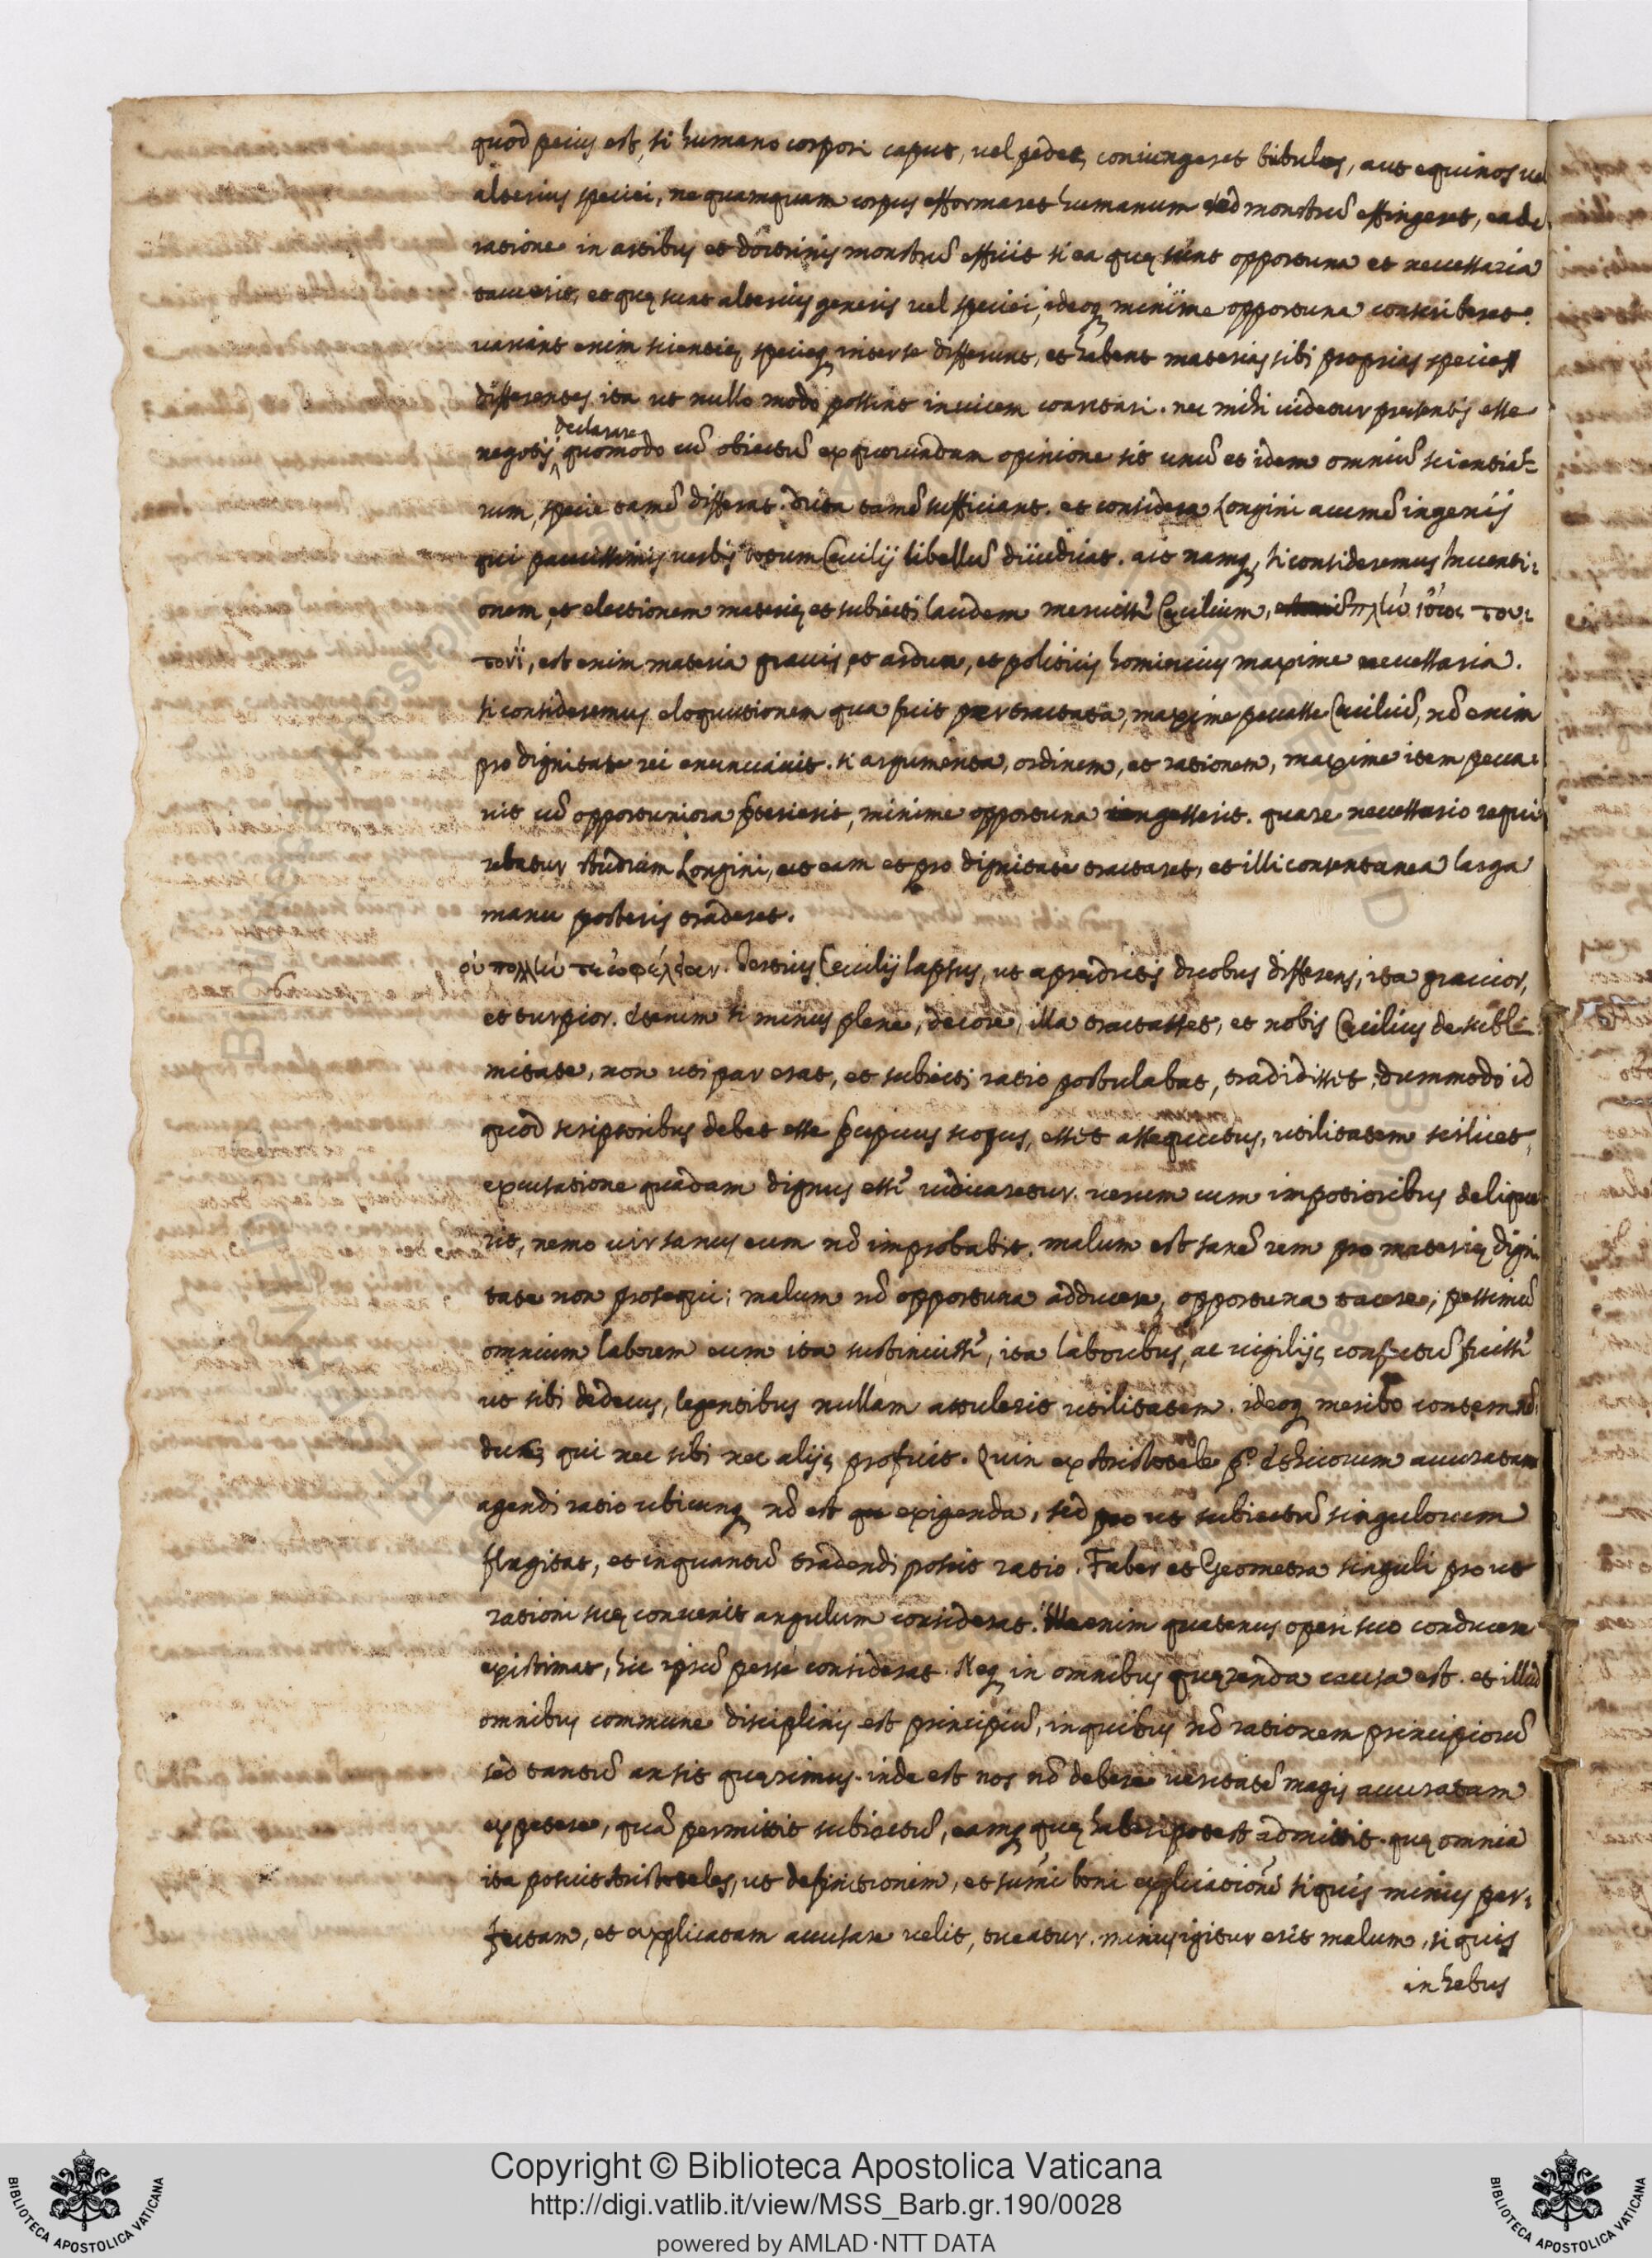 quod peius est, si humano corpori caput, vel pedes coniungeret bubulos, aut equinos vel
alterius speciei, nequamquam corpus efformaret humanum sed monstrũ effingeret, eadẽ
ratione in artibus et doctrinis monstrũ efficit si ea quę sunt opportuna et necessaria
tacuerit, et quę sunt alterius generis vel speciei, ideoq minime opportuna conscriberet.
variant enim scientię, specieq inter se differunt, et habent materias sibi proprias specie
differentes ita ut nullo modo possint invicem coartari. nec mihi videtur presentis esse
declarare
negotij quomodo cũ obiectũ ex quorundam opinione sit unũ et idem omniũ scientia-
rum, specie tamẽ differat. dicta tamẽ sufficiant. et considera Longini acumẽ ingenij
qui paucissimis verbis totum Cęcilij libellũ diiudicat. ait namq, si consideremus Inventi-
onem, et electionem materię et subiecti laudem meruisse Cęcilium,
est enim materia gravis, et ardua, et politicis hominibus maxime necessaria.
si consideremus eloqutionem qua fuit pertractata, maxime peccasse Cęciliũ, nõ enim
pro dignitate rei enunciavit. si argumenta, ordinem, et rationem, maxime item pecca-
vit cũ opportuniora pterierit, minime opportuna congesserit. quare necessario requi-
rebatur studium Longini, ut eam et pro dignitate tractaret, et illi consentanea larga
manu posteris traderet.
οὐ πολλὴν τ' ὠφέλειαν. Tertius Cęcilij lapsus, ut a predictis duobus differens, ita gravior,
et turpior. Etenim si minus plene, decore, illa tractasset, et nobis Cęcilius de subli-
mitate, non uti par erat, et subiecti ratio postulabat, tradidisset, dummodo id
quod scriptoribus debet esse pcipuus scopus, esset assequutus, utilitatem scilicet,
excusatione quadam dignus esse iudicaretur. verum cum in potioribus delique-
rit, nemo vir sanus eum nõ improbabit. malum est sanẽ rem pro materię digni-
tate non prosequi; malum nõ opportuna adducere, opportuna tacere; pessimũ
omnium laborem eum ita sustinuisse, ita laboribus, ac vigilijs confectũ fuisse
ut sibi dedecus, legentibus nullam attulerit utilitatem. ideoq merito contemnẽ-
dus, qui nec sibi nec alijs profuit. Quin ex Aristotele po Ethicorum accuratam
agendi ratio ubicunq nõ est exigenda, sed prout subiectũ singulorum
flagitat, et inquantũ tradendi poscit ratio. Faber et Geometra singuli prout
rationi suę convenit angulum considerat. Ille enim quatenus operi suo conducere
existimat, hic ipsũ per se considerat. Neq in omnibus quęrenda causa est. et illud
omnibus commune disciplinis est principiũ, in quibus nõ rationem principiorũ
sed tantũ an sit quęrimus. inde est nos nõ debere veritatẽ magis accuratam
expetere, quã permittit subiectũ, eamq quę haberi potest admittit. quę omnia
ita posuit Aristoteles, ut definitionem, et sumi boni explicationẽ si quis minus per-
fectam, et explicatam accusare velit, tueatur. minus igitur erit malum, si quis
in hebus
Copyright © Biblioteca Apostolica Vaticana
http://digi.vatlib.it/view/MSS_Barb.gr.190/0028
powered by AMLAD·NTT DATA
BIBLIOTECA APOSTOLICA VATICANA
BIBLIOTECA APOSTOLICA VATICANA